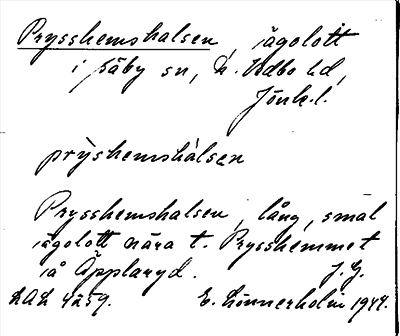 Prysshemshalsen, ägolott
i Säby sn, N. Vedbo hd,
Jönk. l.
prỳshemshàlsen
Prysshemshalsen, lång, smal
ägolott nära t. Prysshemmet
på Äpplaryd. J. G.
LAL 4259. E. Linnerholm 1944.